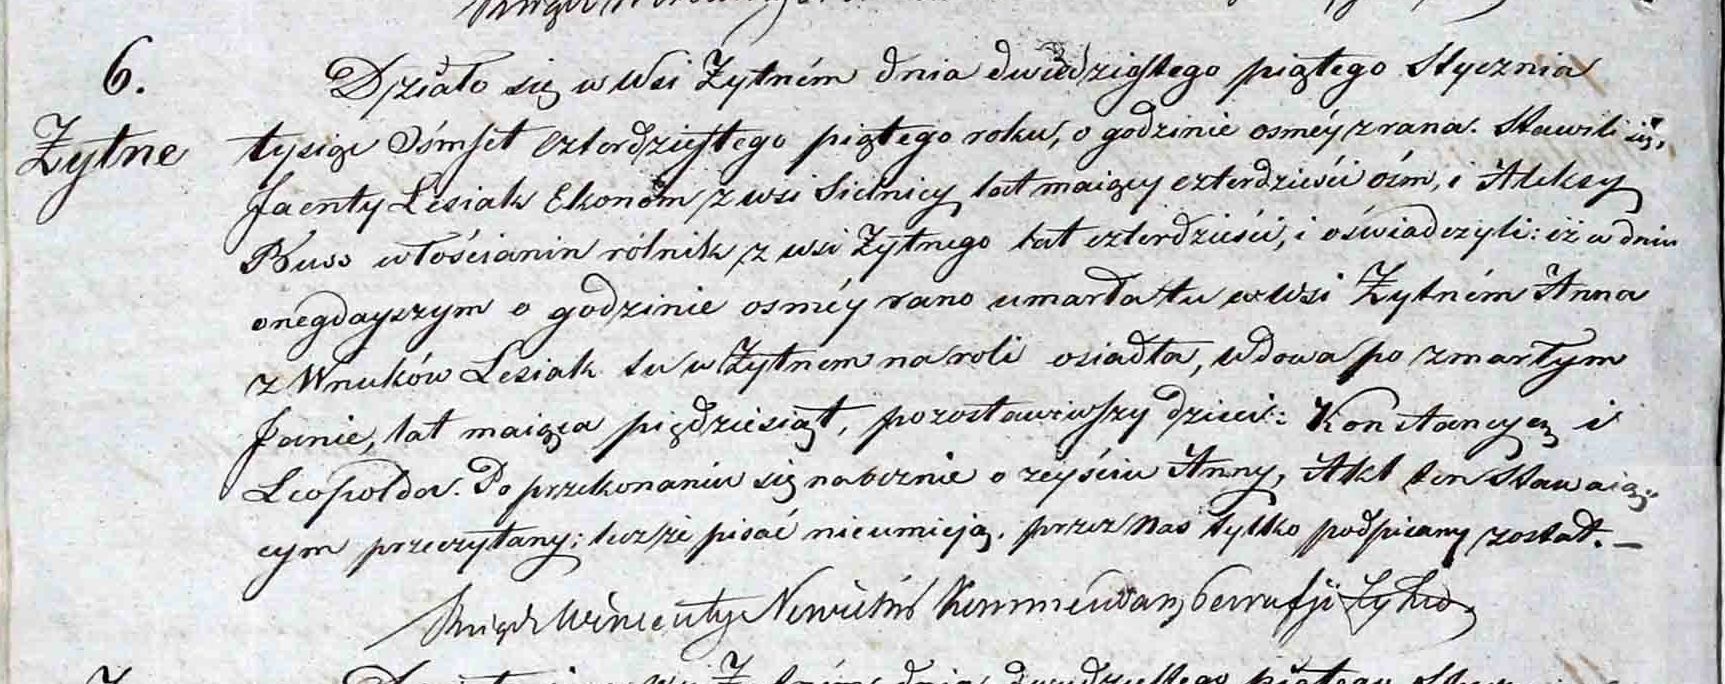 6.
Żytne
Działo się w Wsi Żytném dnia dwudziestego piątego Stycznia
tysiąc Ośmset czterdziestego piątego roku, o godzinie osméy z rana. Stawili się,
Jacenty Lesiak Ekonom z wsi Sielnicy lat maiący czterdzieści óśm, i Aleksy
włościanin rólnik z wsi Żytnego lat czterdzieści, i oświadczyli: iż w dniu
onegdayszym o godzinie osméy rano umarła tu w Wsi Żytném Anna
z Wnuków Lesiak tu w Żytnem na roli osiadła, wdowa po zmarłym
Janie, lat maiąca pięćdziesiąt, pozostawiwszy dzieci: Konstancyą i
Leopolda. Po przekonaniu się naocznie o zeyściu Anny, Akt ten Stawaią-
cym przeczytany; lecz że pisać nieumieją, przez Nas tylko podpisany został. —
Xiądz Wincenty Kommendarz
dnia dwudziestego piątego